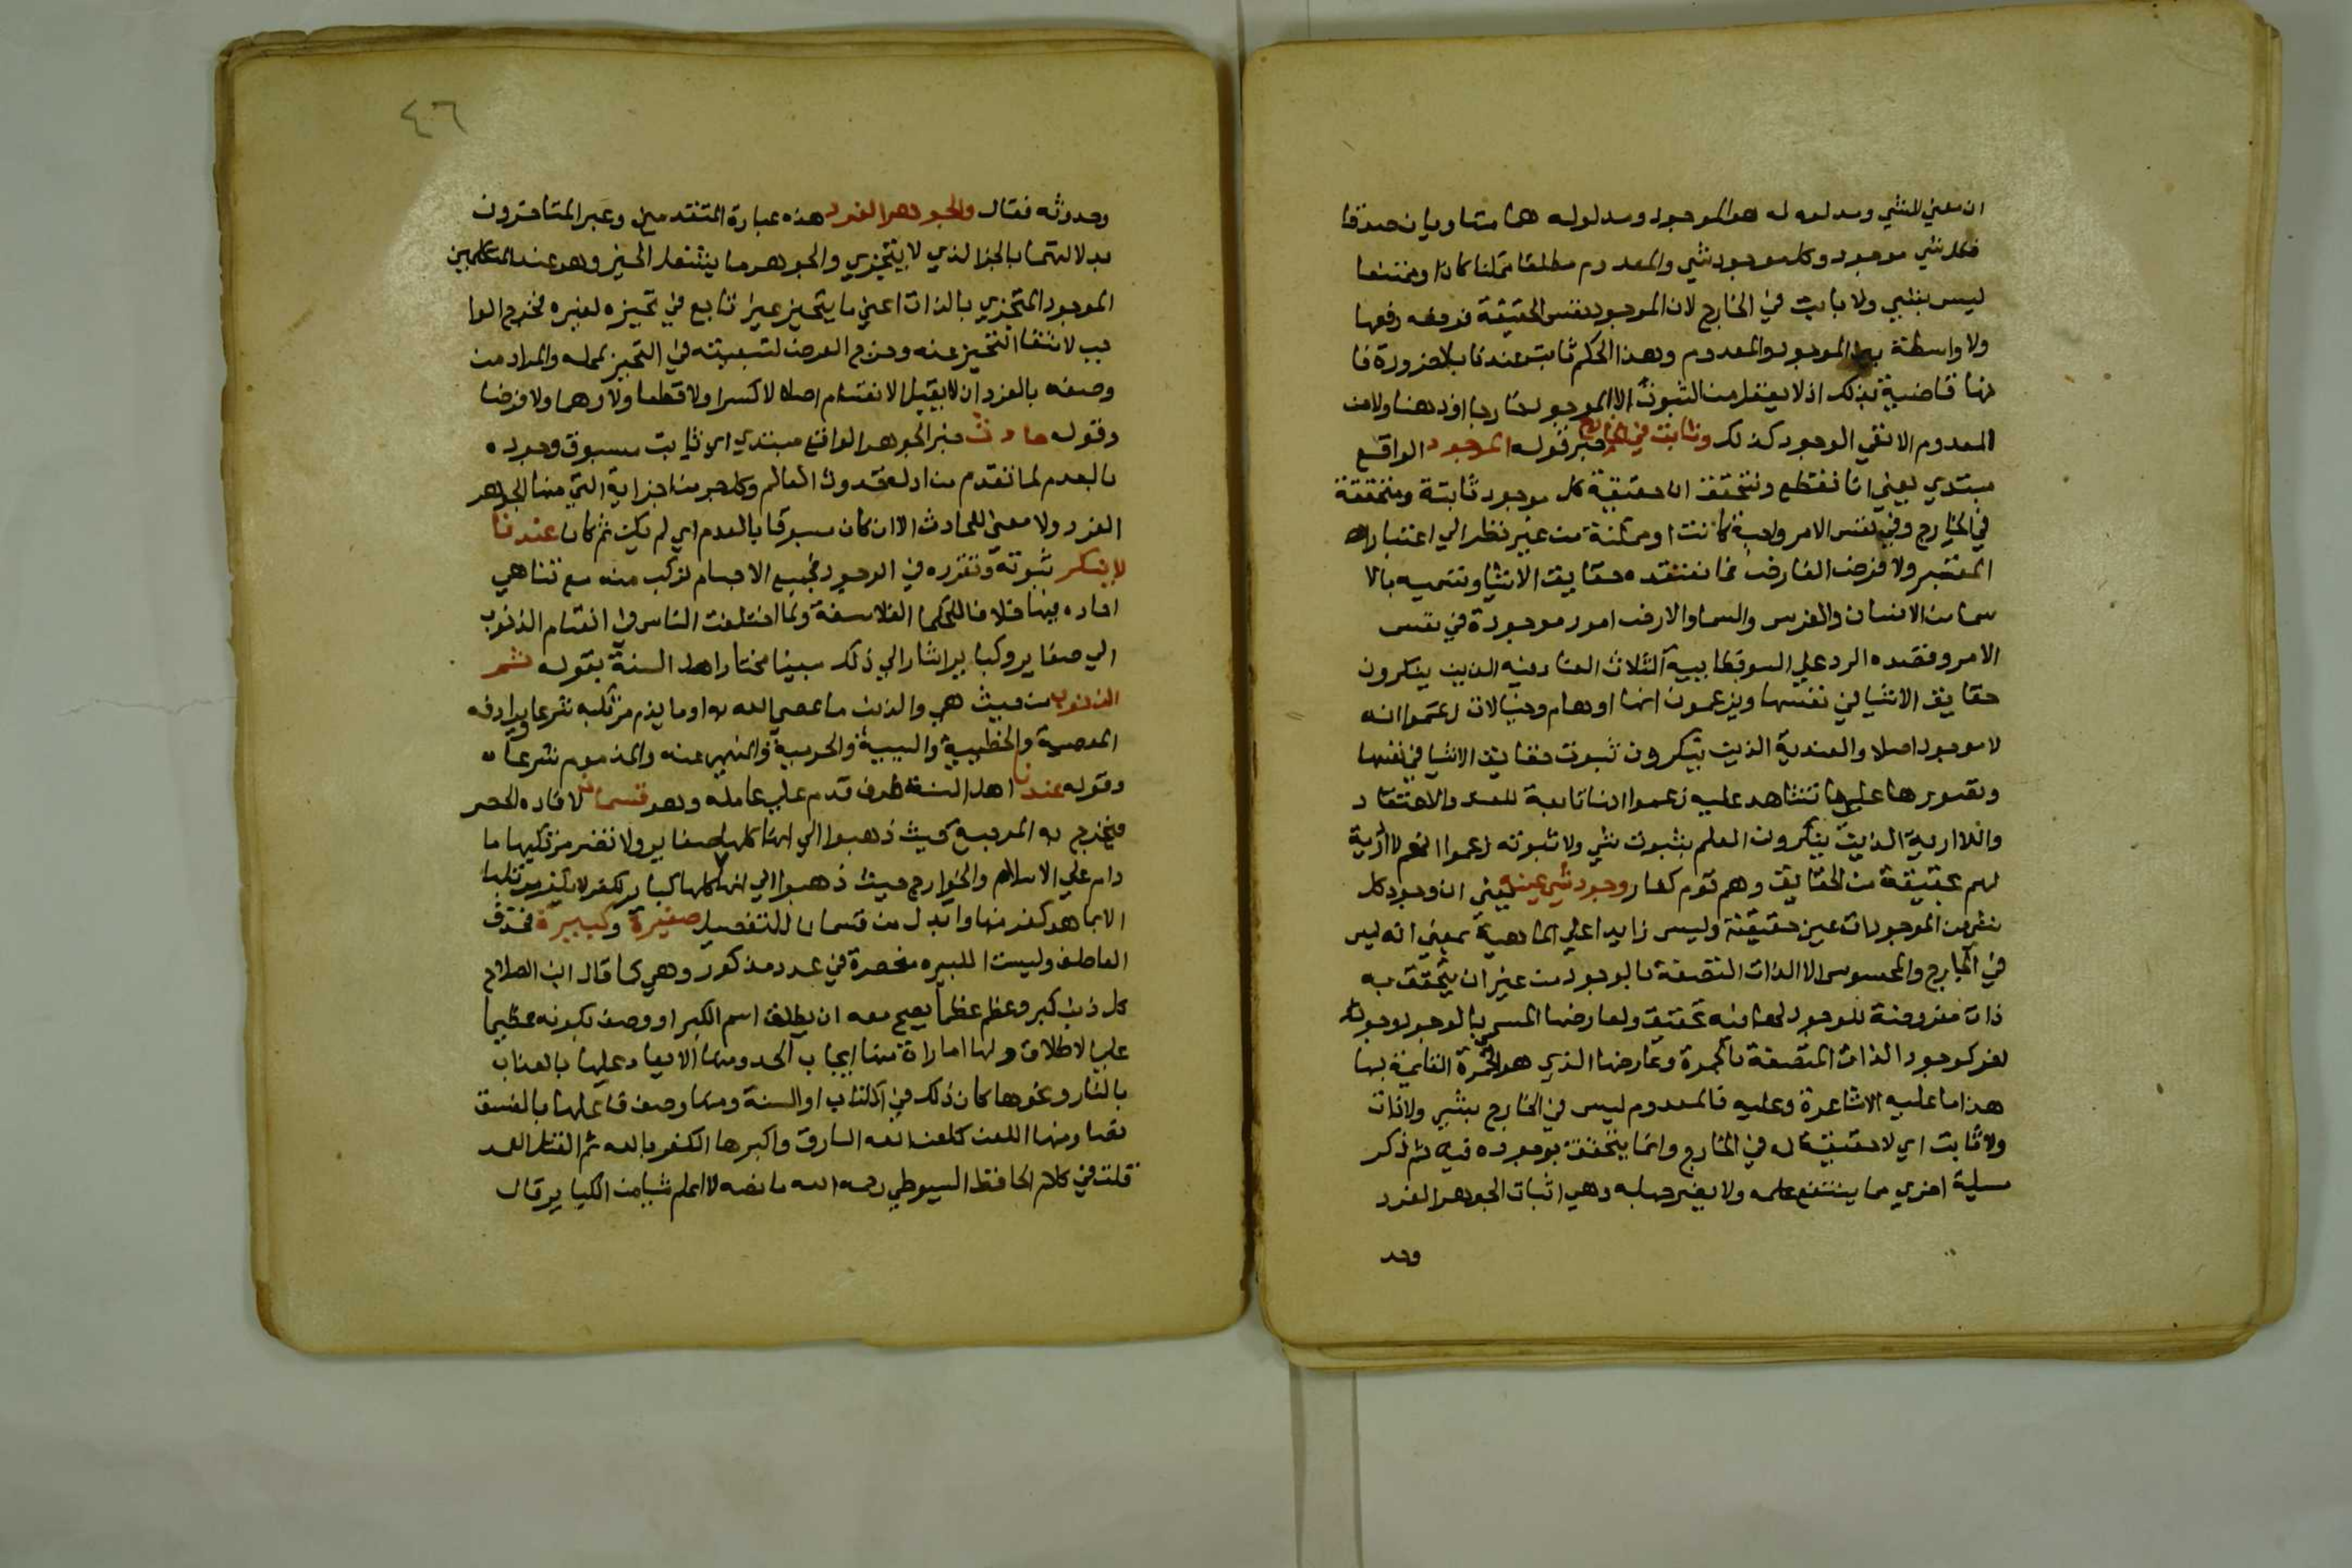 ان معني الشي ومدلوله له هو الموجود ومدلوله هما متساويان صدقا
فكل شي موجود وكل موجود شي والمعدوم مطلقا ممكنا كان او ممتنعا
ليس بشي ولا ثابت في الخارج لان الموجود نفس الحقيقة فرفعه رفعها
ولا واسطة بين الموجود والمعدوم وهذا الحكم ثابت عندنا بالضرورة فا
نها قاضية بذلك اذ لا يعقل من الثبوت الا الموجود خارجا او ذهنا ولا من
المعدوم الا نفي الوجود كذلك وثابت في الخارج خبر قوله الموجود الواقع
مبتدي يعني انا نقطع ونتحقق ان حقيقة كل موجود ثابتة ومتحققة
في الخارج وفي نفس الامر واجبة كانت او ممكنة من غير نظر الي اعتبار
المعتبر ولا فرض الفارض فما نعتقده حقايق الاشيا ونسميه بالا
سما من الانسان والفرس والسما والارض امور موجودة في نفس
الامر وقصده الرد علي السوفسطاييه الثلاث العنادية الذين ينكرون
حقايق الاشيا في نفسها ويزعمون انها اوهام وخيالات زعموا انه
لا موجود اصلا والعندية الذين ينكرون ثبوت حقايق الاشيا في نفسها
وتقررها علي ما تشاهد عليه زعموا انها تابعة للعند والاعتقاد
واللاادرية الذين ينكرون العلم بثبوت شي ولا ثبوته زعموا انهم لا ادرية
لهم بحقيقة من الحقايق وهم قوم كفار وجود شي عينه يعني ان وجود كل
شي من الموجودات عين حقيقته وليس زايدا علي الماهية بمعني انه ليس
في الخارج والمحسوس الا الذات المتصفة بالوجود من غير ان يتحقق به
ذات معروضة للوجود لها منه تحقق ولعارضها المسمي بالوجود وجود
لغر كوجود الذات المتصفة بالحمرة وعارضها الذي هو الحمرة القايمة بها
هذا ما عليه الاشاعرة وعليه فالمعدوم ليس في الخارج بشي ولا ذات
ولا ثابت اي لا حقيقة له في الخارج وانما يتحقق بوجوده فيه ثم ذكر
مسلية اخري مما ينتفع علمه ولا يضر جهله وهي اثبات الجوهر الفرد
وحد
٤٦
وحدوثه فقال والجوهر الفرد هذه عبارة المتقدمين وعبر المتاخرون
بدلالتهما بالجز الذي لا يتجزي والجوهر ما يشغل الحيز وهو عند المتكلمين
الموجود المتحيز بالذات اعني ما يتحيز غير تابع في تحيزه لغيره فخرج الوا
جب لانتفا التحيز عنه وخرج العرض لتبعيته في التحيز لمحله والمراد من
وصفه بالفرد ان لا يقبل الانقسام اصلا لا كسرا ولا قطعا ولا وهما ولا فرضا
وقوله حادث خبر الجوهر الواقع مبتدي اي ثابت مسبوق وجوده
بالعدم لما تقدم من ادلة حدوث العالم وكل جز من اجزايه التي منها الجواهر
الفرد ولا معني للحادث الا ان كان مسبوقا بالعدم اي لم يكن ثم كان عندنا
لا ينكر ثبوته وتقرره في الوجود فجميع الاجسام تركب منه مع تناهي
احاده فيها خلافا للحكما الفلاسفة ولما اختلفت الناس في انقسام الذنوب
الي صغاير وكباير اشار الي ذلك مبينا مختار اهل السنة بقوله ثم
الذنوب من حيث هي والذنب ما عصي الله به او ما يذم مرتكبه شرعا ويرادفه
المعصية والخطيية والسيية والجريمة والمنهي عنه والمذموم شرعا
وقوله عندنا اهل السنة ظرف قدم علي عامله وهو قسمان لافادة الحصر
فيخرج به المرجية حيث ذهبوا الي انها كلها صغاير ولا تضر مرتكبها ما
دام علي الاسلام والخوارج حيث ذهبوا الي انها كلها كباير يكفر مرتكبها
الا بما هو كفر منها وابدل من قسمان للتفصيل صغيرة وكبيرة فحذف
العاطف وليست الكبيره منحصرة في عدد مذكور وهي كما قال ابن الصلاح
كل ذنب كبر وعظم عظما يصح معه ان يطلق اسم الكبر او وصف بكونه عظيما
علي الاطلاق ولها امارات منها ايجاب الحد ومنها الايعاد عليها بالعذاب
بالنار ونحوها كان ذلك في الكتاب او السنة ومنها وصف فاعلها بالفسق
نصا ومنها اللعن كلعن الله السارق واكبرها الكفر بالله ثم القتل العمد
قلت في كلام الحافظ السيوطي رحمه الله ما نصه لا اعلم شيا من الكباير قال